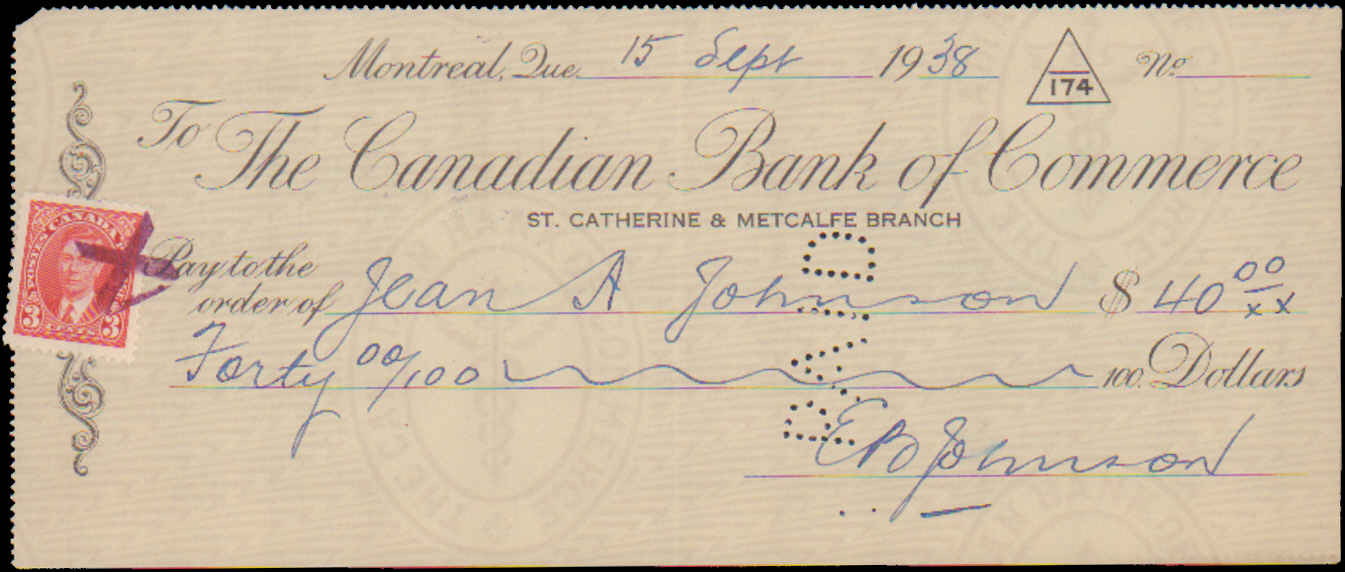 Montreal, Que. 15 Sept 1938 174 No.
To The Canadian Bank of Commerce
ST. CATHERINE & METCALFE BRANCH
POSTES CANADA
3 CENTS 3
Pay to the
order of Jean A Johnson $ 40 00/xx
Forty 00/100 100 Dollars
PAID
EB Johnson